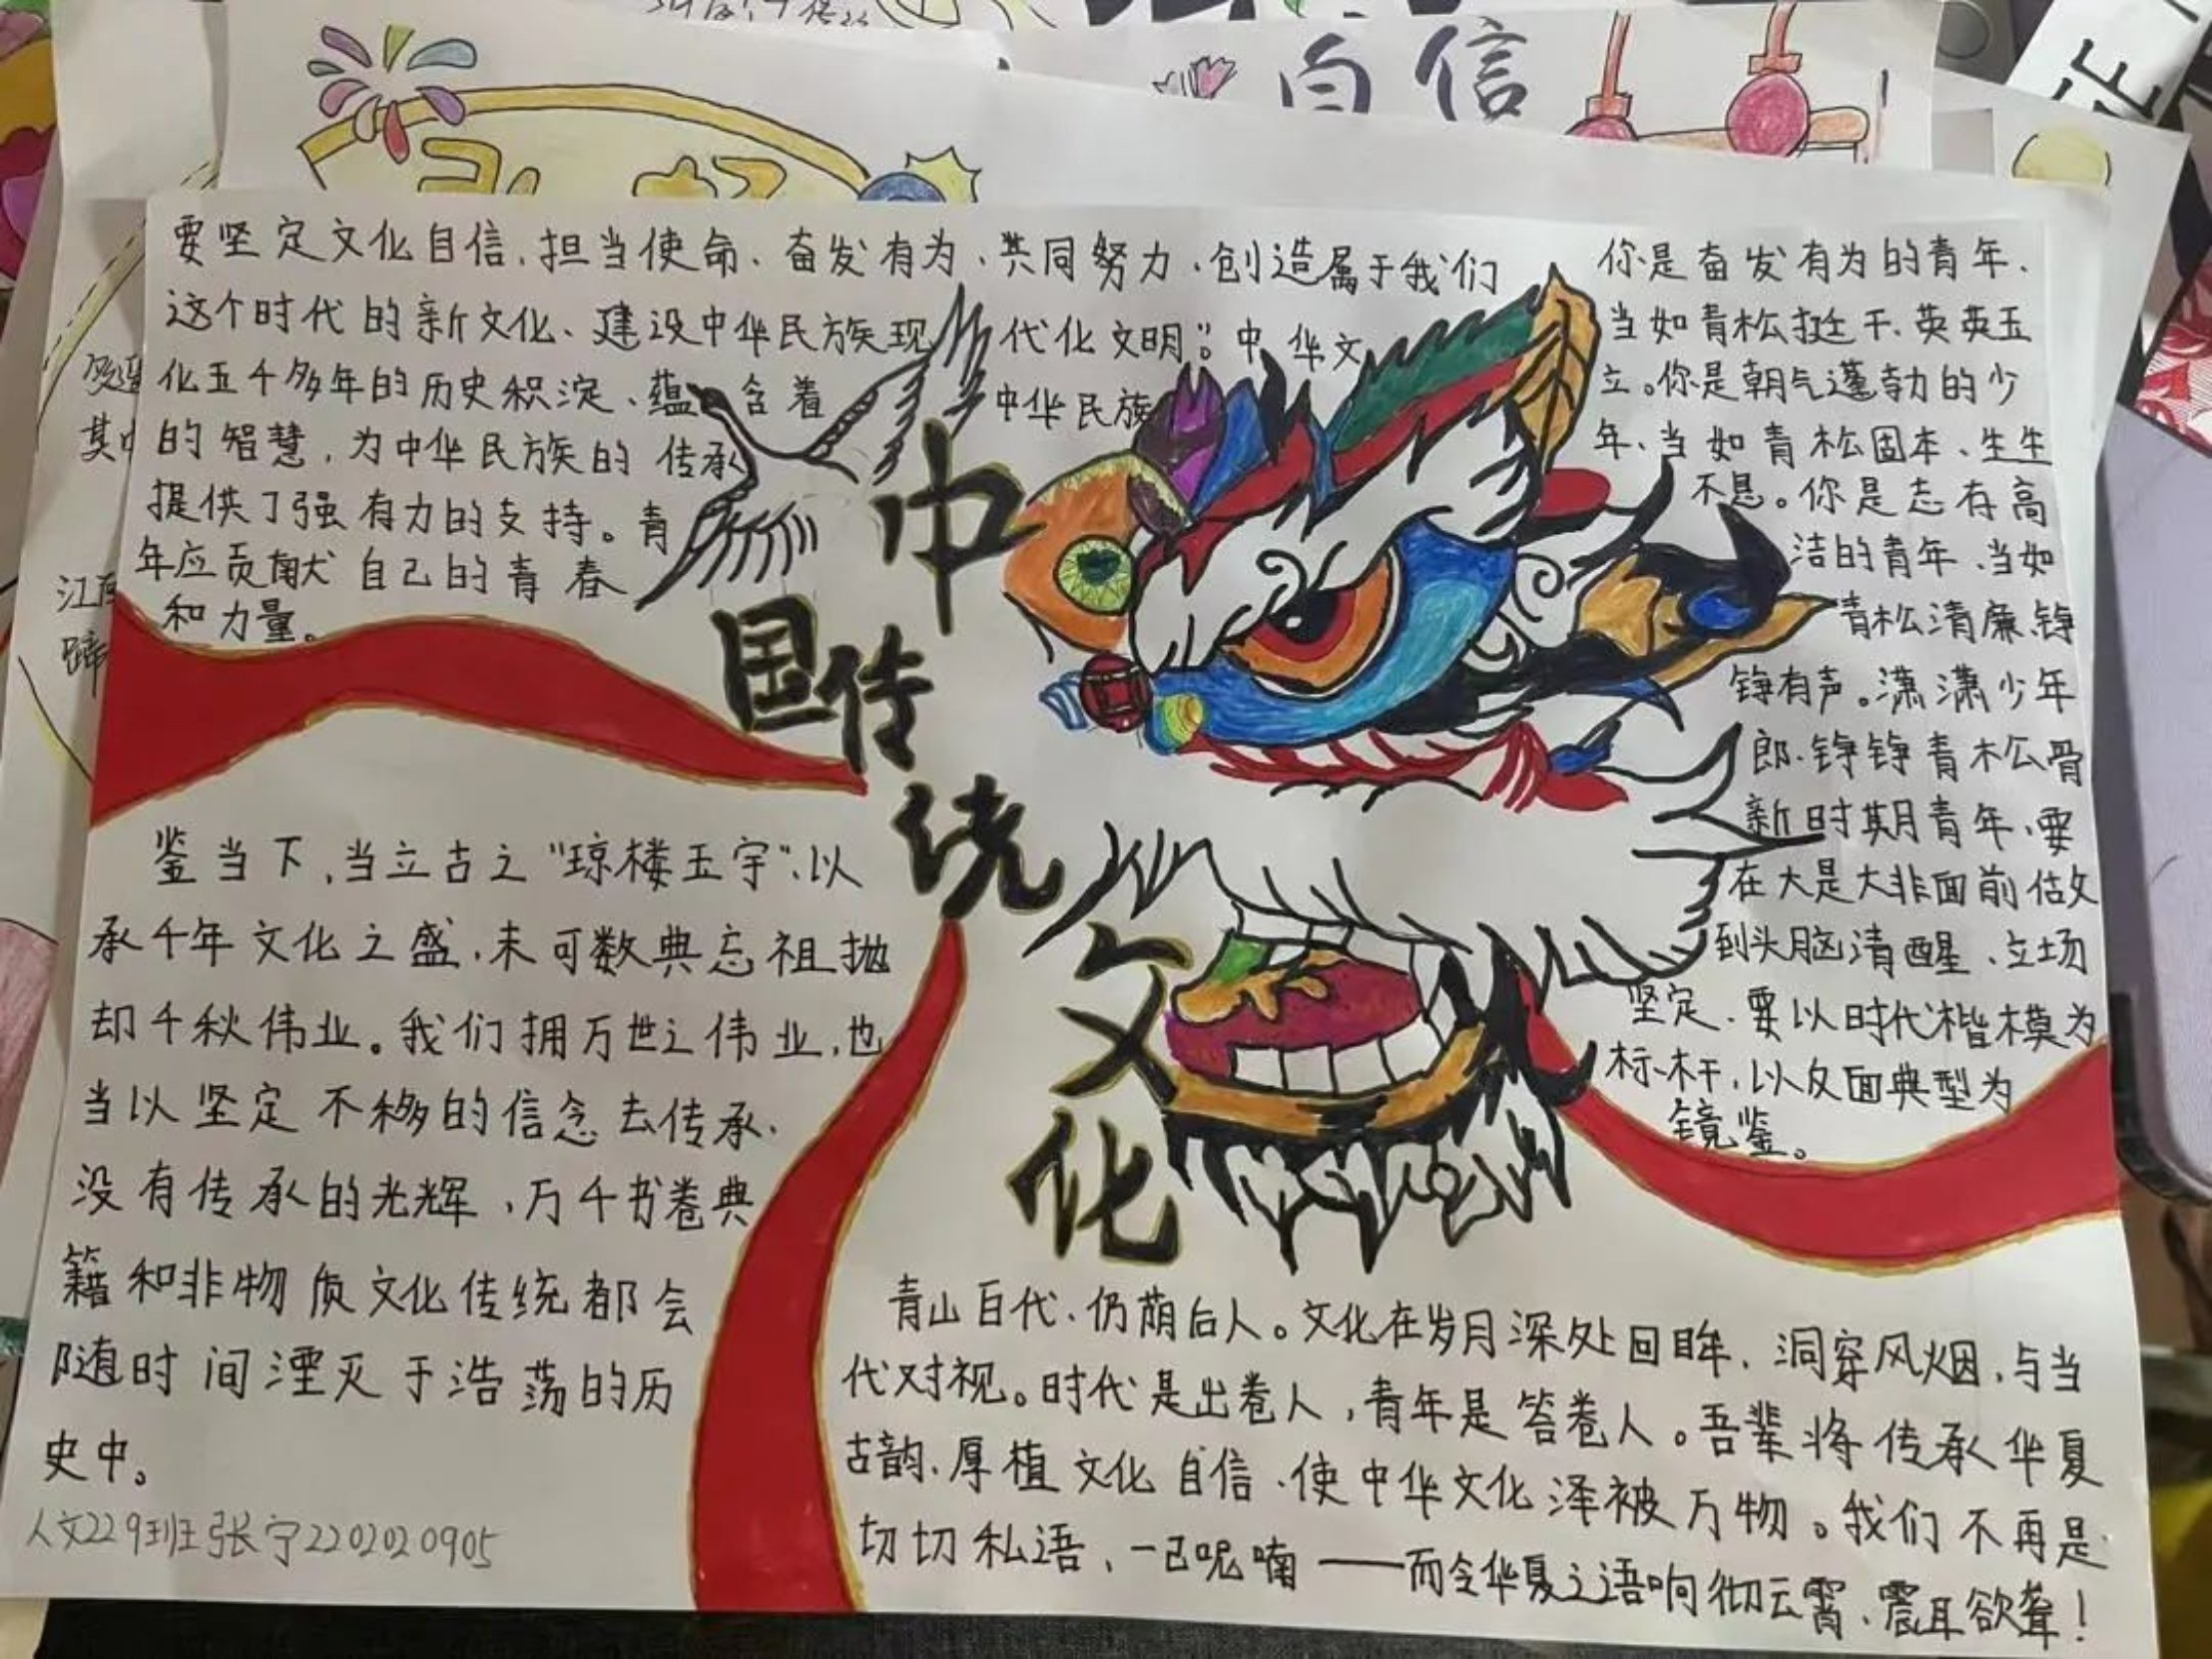 自信
要坚定文化自信、担当使命、奋发有为、共同努力、创造属于我们
这个时代的新文化、建设中华民族现代化文明"。中华文
化五千多年的历史积淀、蕴含着中华民族
的智慧,为中华民族的传承
提供了强有力的支持。青
年应贡献自己的青春
和力量。
中国传统文化
你是奋发有为的青年、
当如青松挺干、英英玉
立。你是朝气蓬勃的少
年、当如青松固本、生生
不息。你是志有高
洁的青年、当如
青松清廉、铮
铮有声。潇潇少年
郎、铮铮青松骨
新时期青年、要
在大是大非面前做
到头脑清醒、立场
坚定、要以时代楷模为
标杆,以反面典型为
镜鉴。
鉴当下,当立古之"琼楼玉宇"、以
承千年文化之盛、未可数典忘祖抛
却千秋伟业。我们拥万世之伟业,也
当以坚定不移的信念去传承、
没有传承的光辉,万千书卷典
籍和非物质文化传统都会
随时间湮灭于浩荡的历
史中。
人文229班张宁2202020905
青山百代、仍荫后人。文化在岁月深处回眸、洞穿风烟,与当
代对视。时代是出卷人,青年是答卷人。吾辈将传承华夏
古韵、厚植文化自信、使中华文化泽被万物。我们不再是
切切私语、一己呢喃——而令华夏之语响彻云霄、震耳欲聋!